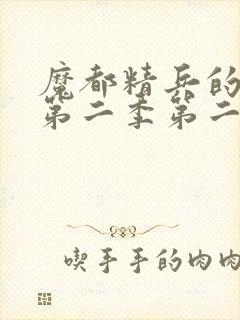 魔都精兵的
第二季第二
喫手手的肉肉